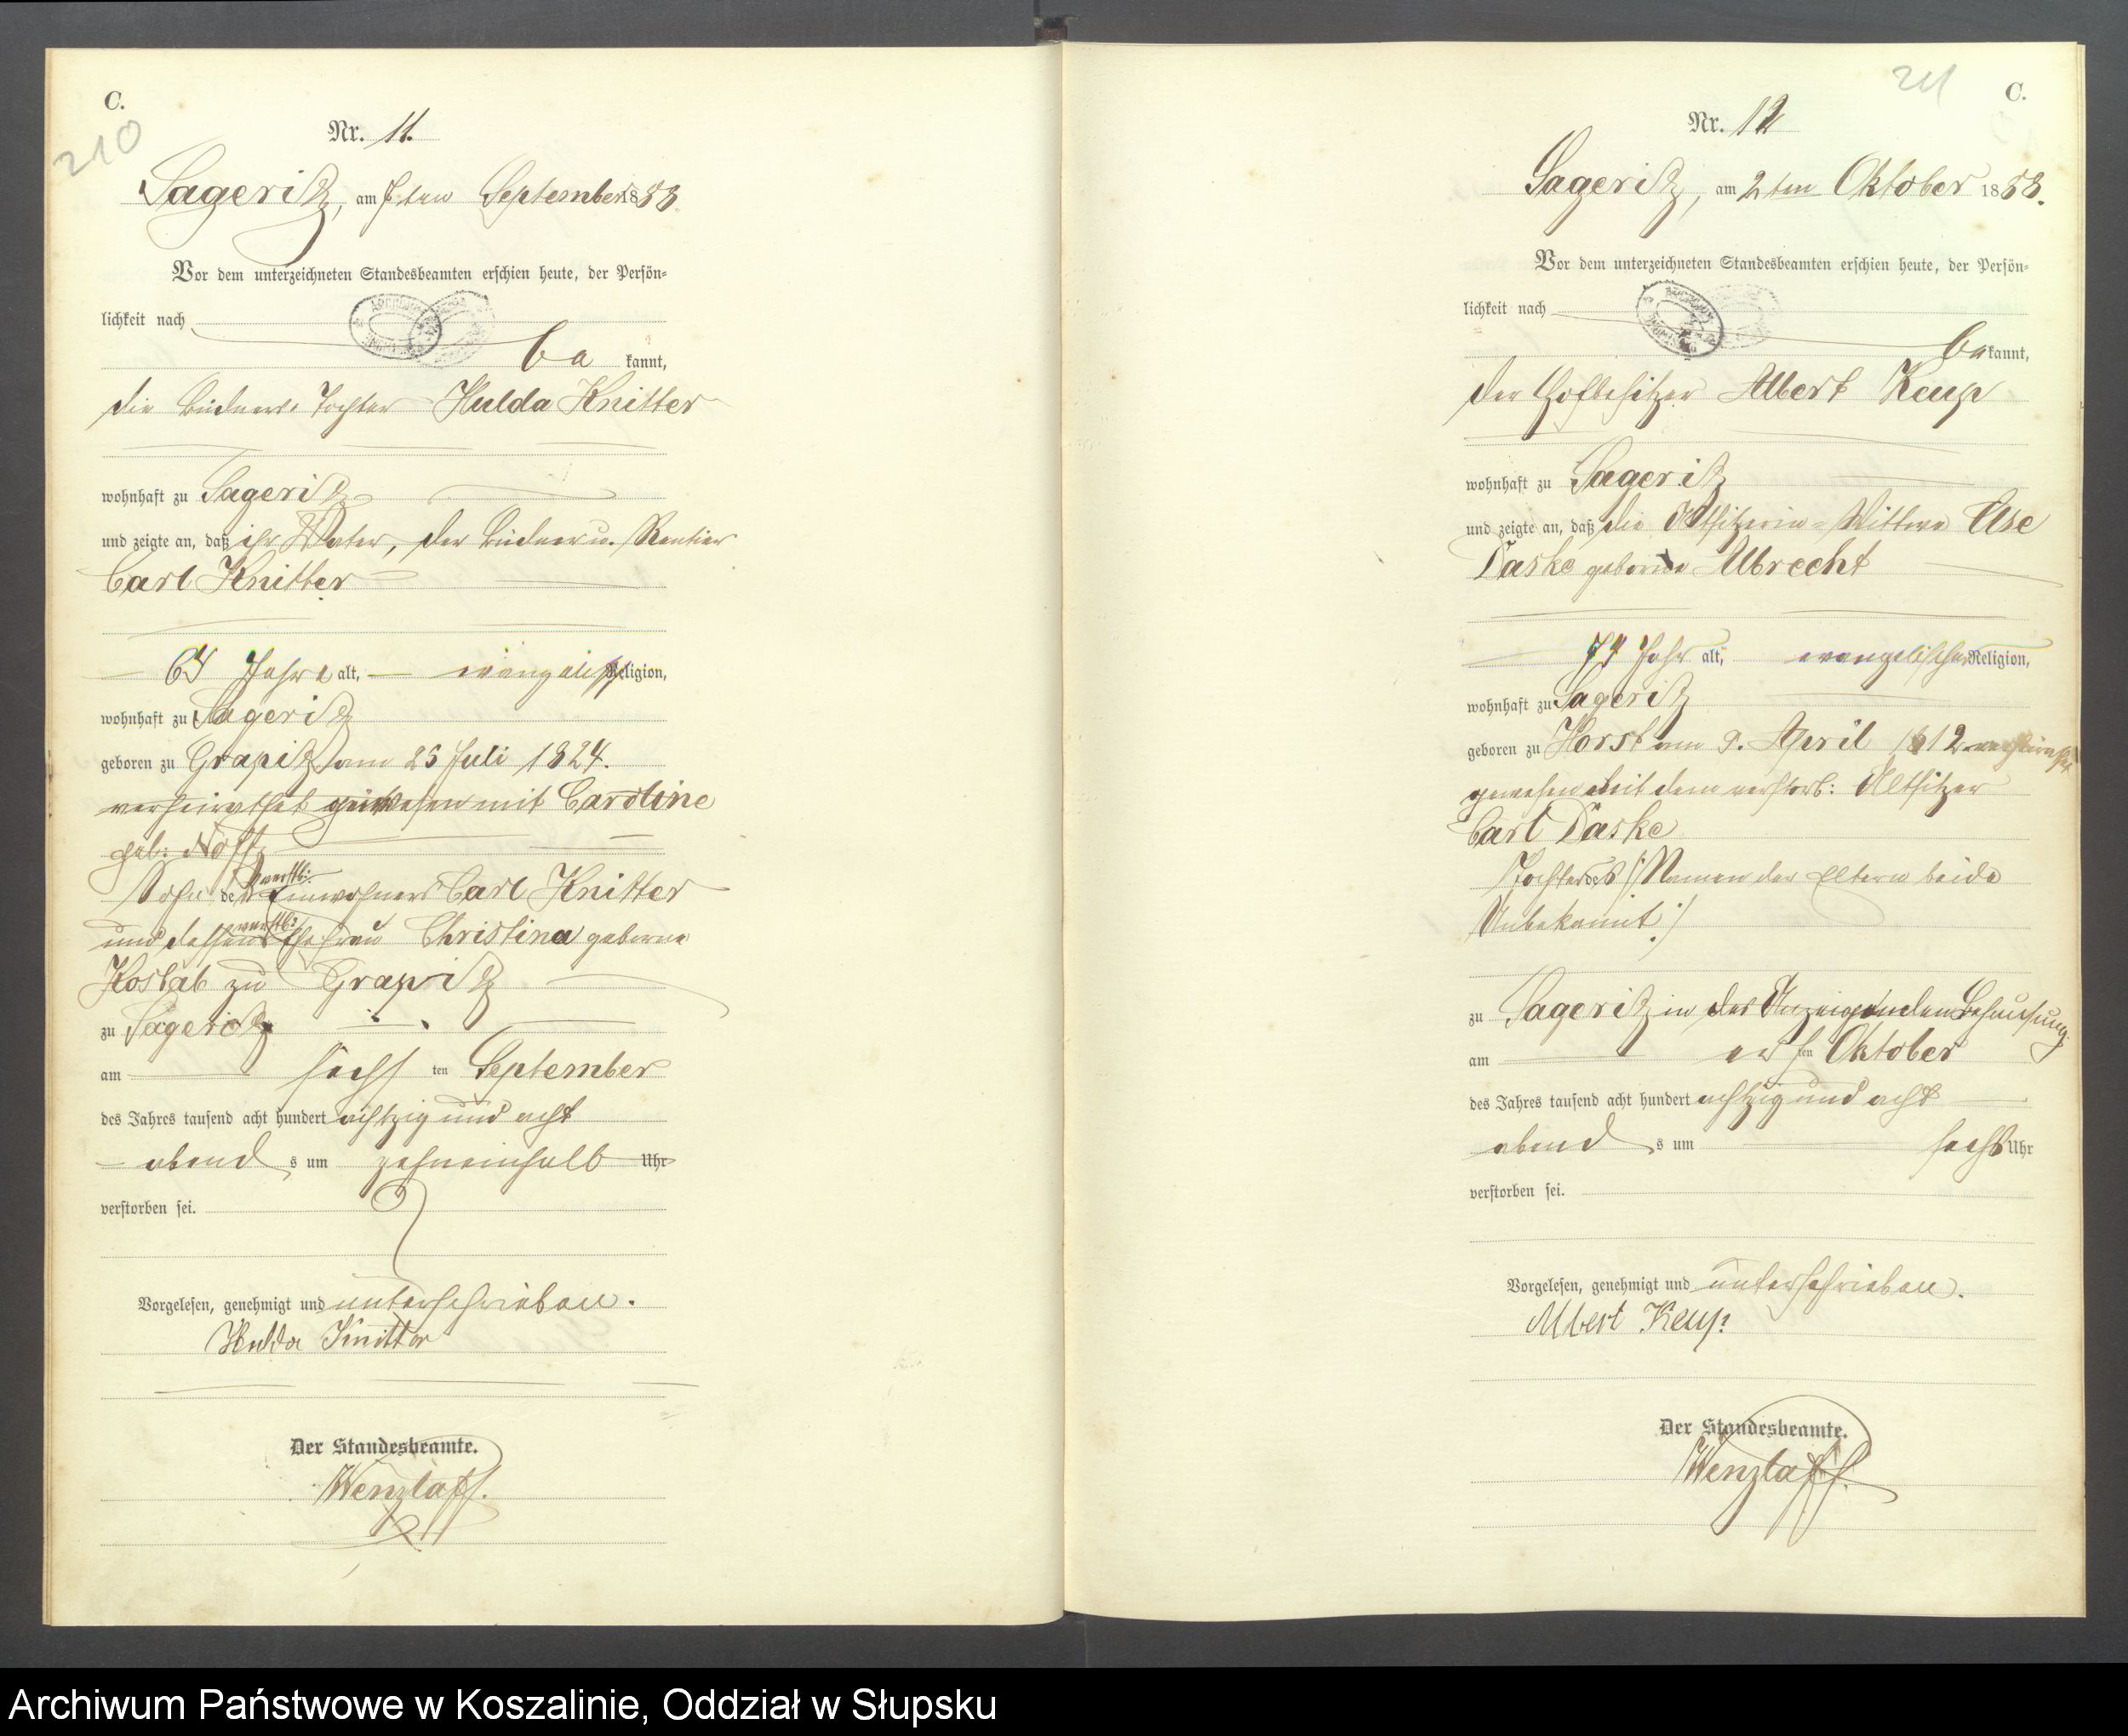 C.
210
Nr. 11.
Sageritz, am 7ten September 1888.
Vor dem unterzeichneten Standesbeamten erschien heute, der Persön-
lichkeit nach
be kannt,
die Büdner-Tochter Hulda Knitter
wohnhaft zu Sageritz
und zeigte an, daß ihr Vater, der Büdner u. Rentier
Carl Knitter
64 Jahre alt, evangelisch Religion,
wohnhaft zu Sageritz
geboren zu Grapitz am 25 Juli 1824.
verheirathet gewesen mit Caroline
geb:
Sohn des verstb: Einwohners Carl Knitter
und dessen verstb: Ehefrau Christina geborne
zu Grapitz
zu Sageritz
am sechs ten September
des Jahres tausend acht hundert achtzig und acht
abend s um zehneinhalb Uhr
verstorben sei.
Vorgelesen, genehmigt und unterschrieben.
Hulda Knitter
Der Standesbeamte.
Wenzlaff.
211
C.
Nr. 12
Sageritz, am 2ten Oktober 1888.
Vor dem unterzeichneten Standesbeamten erschien heute, der Persön-
lichkeit nach
be kannt,
der Hofbesitzer Albert Keup
wohnhaft zu Sageritz
und zeigte an, daß die Altsitzerin-Wittwe
Daske geborne Albrecht
77 Jahr alt, evangelischer Religion,
wohnhaft zu Sageritz
geboren zu Horst am 9. April 1812 verheirathet
gewesen mit dem verstorb: Altsitzer
Carl Daske
Tochter des /: Namen der Eltern beide
Unbekannt :/
zu Sageritz in des Anzeigenden Behausung
am ers ten Oktober
des Jahres tausend acht hundert achtzig und acht
abend s um sechs Uhr
verstorben sei.
Vorgelesen, genehmigt und unterschrieben.
Albert Keup.
Der Standesbeamte.
Wenzlaff.
Archiwum Państwowe w Koszalinie, Oddział w Słupsku